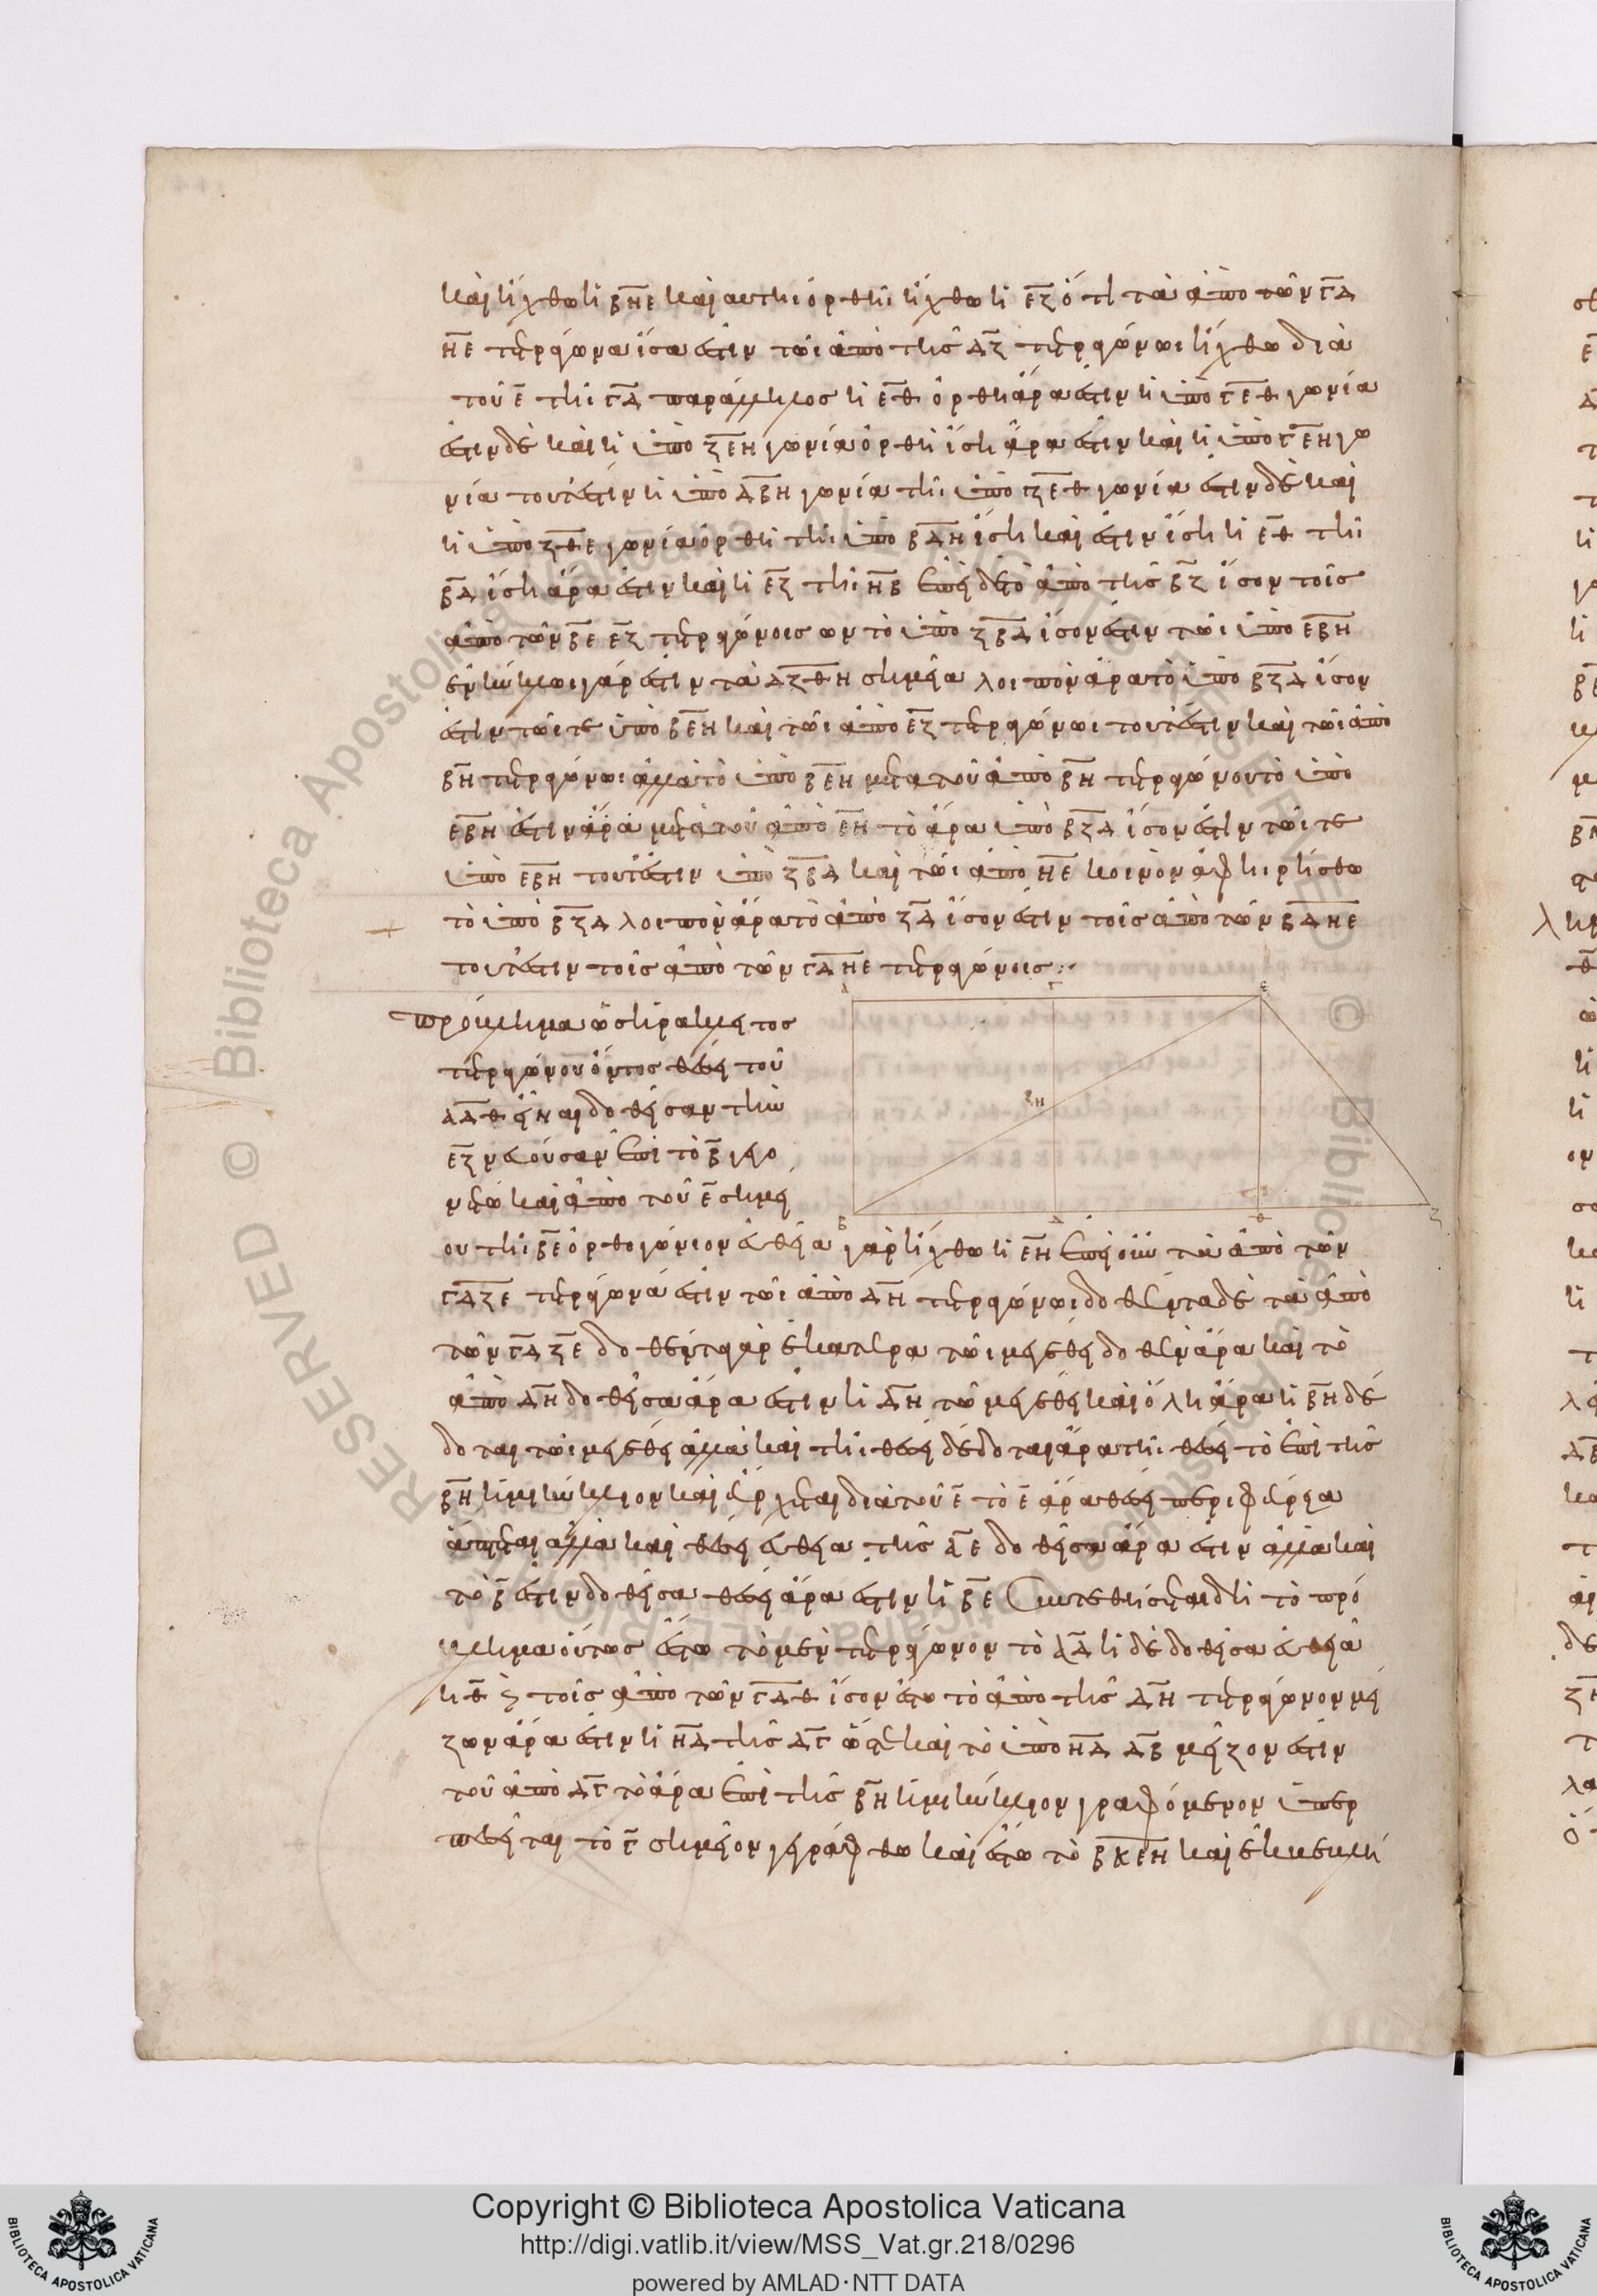 καὶ ἤχθω ἡ ΒΗΕ καὶ αυτῆι ὀρθὴ ἤχθω ἡ ΕΖ ὅτι τὰ ἀπὸ τῶν ΓΔ
ΗΕ τετράγωνα ἴσα ἐστὶν τῶι ἀπὸ τῆς ΔΖ τετραγώνωι ἤχθω διὰ
τοῦ Ε τῆι ΓΔ παράλληλος ἡ ΕΘ ὀρθὴ ἄρα ἐστὶν ἡ ὑπὸ ΓΕΘ γωνία
ἐστιν δὲ καὶ ἡ ὑπὸ ΖΕΗ γωνία ὀρθὴ ἴση ἄρα ἐστὶν καὶ ἡ ὑπὸ ΓΕΗ γω
νία τουτέστιν ἡ ὑπὸ ΔΒΗ γωνία τῆι ὑπὸ ΖΕΘ γωνία ἐστιν δὲ καὶ
ἡ ὑπὸ ΖΘΕ γωνία ὀρθὴ τῆι ὑπὸ ΒΔΗ ἴση καὶ ἐστιν ἴση ἡ ΕΘ τῆι
ΒΔ ἴση ἄρα ἐστὶν καὶ ἡ ΕΖ τῆι ΗΒ ἐπεὶ δὲ τὸ ἀπὸ τῆς ΒΖ ἴσον τοῖς
ἀπὸ τῶν ΒΕ ΕΖ τετραγώνοις ων τὸ ὑπὸ ΖΒΔ ἴσον ἐστὶν τῶι ὑπὸ ΕΒΗ
ἐν κύκλωι γάρ ἐστιν τὰ ΔΖΕΗ σημεῖα λοιπὸν ἄρα τὸ ὑπὸ ΒΖΔ ἴσον
ἐστὶν τῶι τε ὑπὸ ΒΕΗ καὶ τῶι ἀπὸ ΕΖ τετραγώνωι τουτέστιν καὶ τῶι ἀπὸ
ΒΗ τετραγώνωι ἀλλὰ τὸ ὑπὸ ΒΕΗ μετὰ τοῦ ἀπὸ ΒΗ τετραγώνου τὸ ὑπὸ
ΕΒΗ ἐστιν ἄρα μετὰ τοῦ ἀπὸ ΕΗ τὸ ἄρα ὑπὸ ΒΖΔ ἴσον ἐστὶν τῶι τε
ὑπὸ ΕΒΗ τουτέστιν ὑπὸ ΖΒΔ καὶ τῶι ἀπὸ ΗΕ κοινὸν ἀφηιρήσθω
τὸ ὑπὸ ΒΖΔ λοιπὸν ἄρα τὸ ἀπὸ ΖΔ ἴσον ἐστὶν τοῖς ἀπὸ τῶν ΒΔ ΗΕ
τουτέστιν τοῖς ἀπὸ τῶν ΓΔ ΗΕ τετραγώνοις :~
Α Γ Ε
προβλημα ὡς ἡράκλειτος
τετραγώνου ὄντος θέσει τοῦ
ΑΔ θεῖναι δοθεῖσαν τὴν
ΕΖ νεύουσαν ἐπὶ τὸ Β γεγο
νέτω καὶ ἀπὸ τοῦ Ε σημεί
Η
Β Δ Θ Ζ
ου τῆι ΒΕ ὀρθογώνιον εὐθεῖα γὰρ ἤχθω ἡ ΕΗ ἐπεὶ οὖν τὰ ἀπὸ τῶν
ΓΔ ΖΕ τετράγωνά ἐστιν τῶι ἀπὸ ΔΗ τετραγώνωι δοθέντα δὲ τὰ ἀπὸ
τῶν ΓΔ ΖΕ δοθέντα γὰρ ἑκατέρα τῶι μεγέθει δοθὲν ἄρα καὶ τὸ
ἀπὸ ΔΗ δοθεῖσα ἄρα ἐστὶν ἡ ΔΗ τῶ μεγέθει καὶ ὅλη ἄρα ἡ ΒΗ δέ
δοται τῶι μεγέθει ἀλλὰ καὶ τῆι θέσει δέδοται ἄρα τῆι θέσει τὸ ἐπὶ τῆς
ΒΗ ἡμικύκλιον καὶ ἔρχεται διὰ τοῦ Ε τὸ Ε ἄρα θέσει περιφέρεια
ἅπτεται ἀλλὰ καὶ θέσει εὐθεῖα τῆς ΑΕ δοθεῖσα ἄρα ἐστιν ἀλλὰ καὶ
τὸ Β ἐστιν δοθεῖσα θέσει ἄρα ἐστιν ἡ ΒΕ Συντεθήσεται δὴ τὸ πρό
βλημα οὕτως ἔστω τὸ μὲν τετράγωνον τὸ ΑΔ ἡ δὲ δοθεῖσα εὐθεῖα
ἡ Θ καὶ τοῖς ἀπὸ τῶν ΓΔ Θ ἴσον ἔστω τὸ ἀπὸ τῆς ΔΗ τετράγωνον μεί
ζων ἄρα ἐστιν ἡ ΗΔ τῆς ΔΓ ὥστε καὶ τὸ ὑπὸ ΗΔ ΔΒ μεῖζον ἐστιν
τοῦ ἀπὸ ΔΓ τὸ ἄρα ἐπὶ τῆς ΒΗ ἡμικύκλιον γραφόμενον ὑπερ
πεσεῖται τὸ Γ σημεῖον γεγράφθω καὶ ἔστω τὸ ΒΚΕΗ καὶ ἐκβεβλή
Copyright © Biblioteca Apostolica Vaticana
http://digi.vatlib.it/view/MSS_Vat.gr.218/0296
powered by AMLAD·NTT DATA